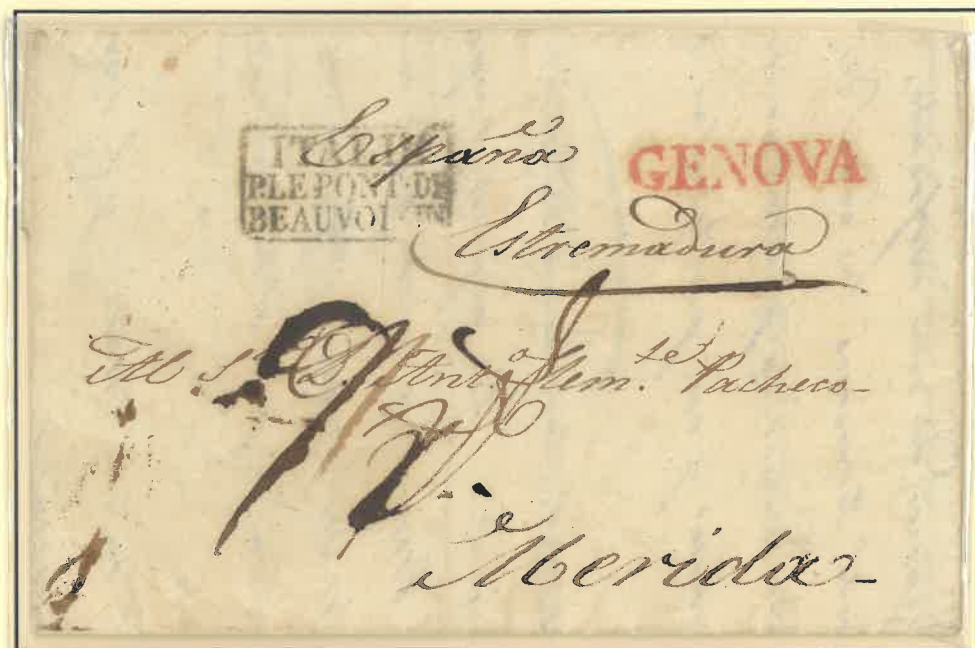 España
ITALIE
P. LE PONT-DE
BEAUVOISIN
GENOVA
Estremadura
Al S.r D. Ant.o Clem.te Pacheco-
Merida-